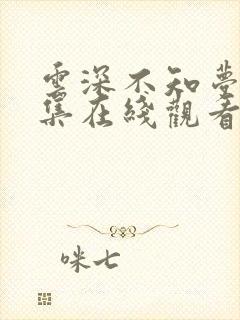 雲深不知夢
集在綫觀看
咪七